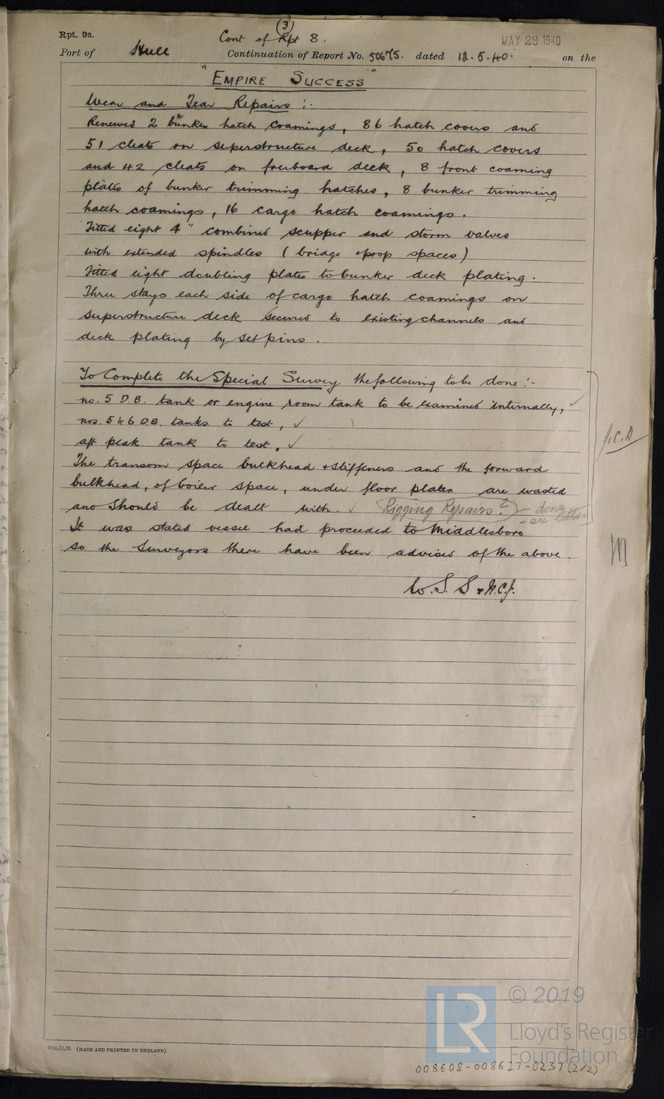 Rpt. 9a.
(3)
Cont of Rpt 8.
MAY 29 1940
Port of Hull Continuation of Report No. 50675. dated 12.5.40. on the
"EMPIRE SUCCESS"
Wear and Tear Repairs :-
Renewed 2 bunker hatch coamings, 86 hatch covers and
51 cleats on superstructure deck, 50 hatch covers
and 42 cleats on freeboard deck, 8 front coaming
plates of bunker trimming hatches, 8 bunker trimming
hatch coamings, 16 cargo hatch coamings.
Fitted eight 4" combined scupper and storm valves
with extended spindles (bridge & poop spaces)
Fitted eight doubling plates to bunker deck plating.
Three stays each side of cargo hatch coamings on
superstructure deck secured to existing channels and
deck plating by set pins.
To Complete the Special Survey the following to be done :-
no. 5 D.B. tank or engine room tank to be examined internally, ✓
nos. 5 & 6 D.B. tanks to test, ✓
aft peak tank to test, ✓
J.C.D
The transom space bulkhead & stiffeners and the forward
bulkhead, of boiler space, under floor plates are wasted
and should be dealt with. ✓ (Rigging Repairs?) - done
- see letter
It was stated vessel had proceeded to Middlesboro
so the Surveyors there have been advised of the above.
W.S.S & H.C.J.
10m,11,39. (MADE AND PRINTED IN ENGLAND)
LR
© 2019
Lloyd's Register
Foundation
008608-008617-0237 (2/2)